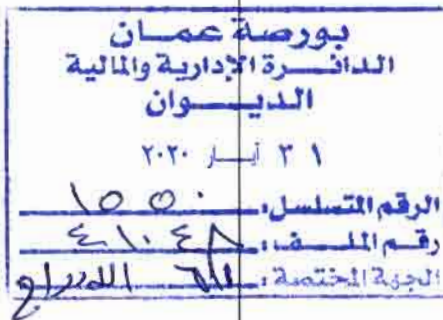 بورصة عمان
الدائرة الإدارية والمالية
الديوان
٣١ أيار ٢٠٢٠
الرقم المتسلسل: ١٥٥٠
رقم الملف: ٤١٠٤٨
الجهة المختصة: الادراج